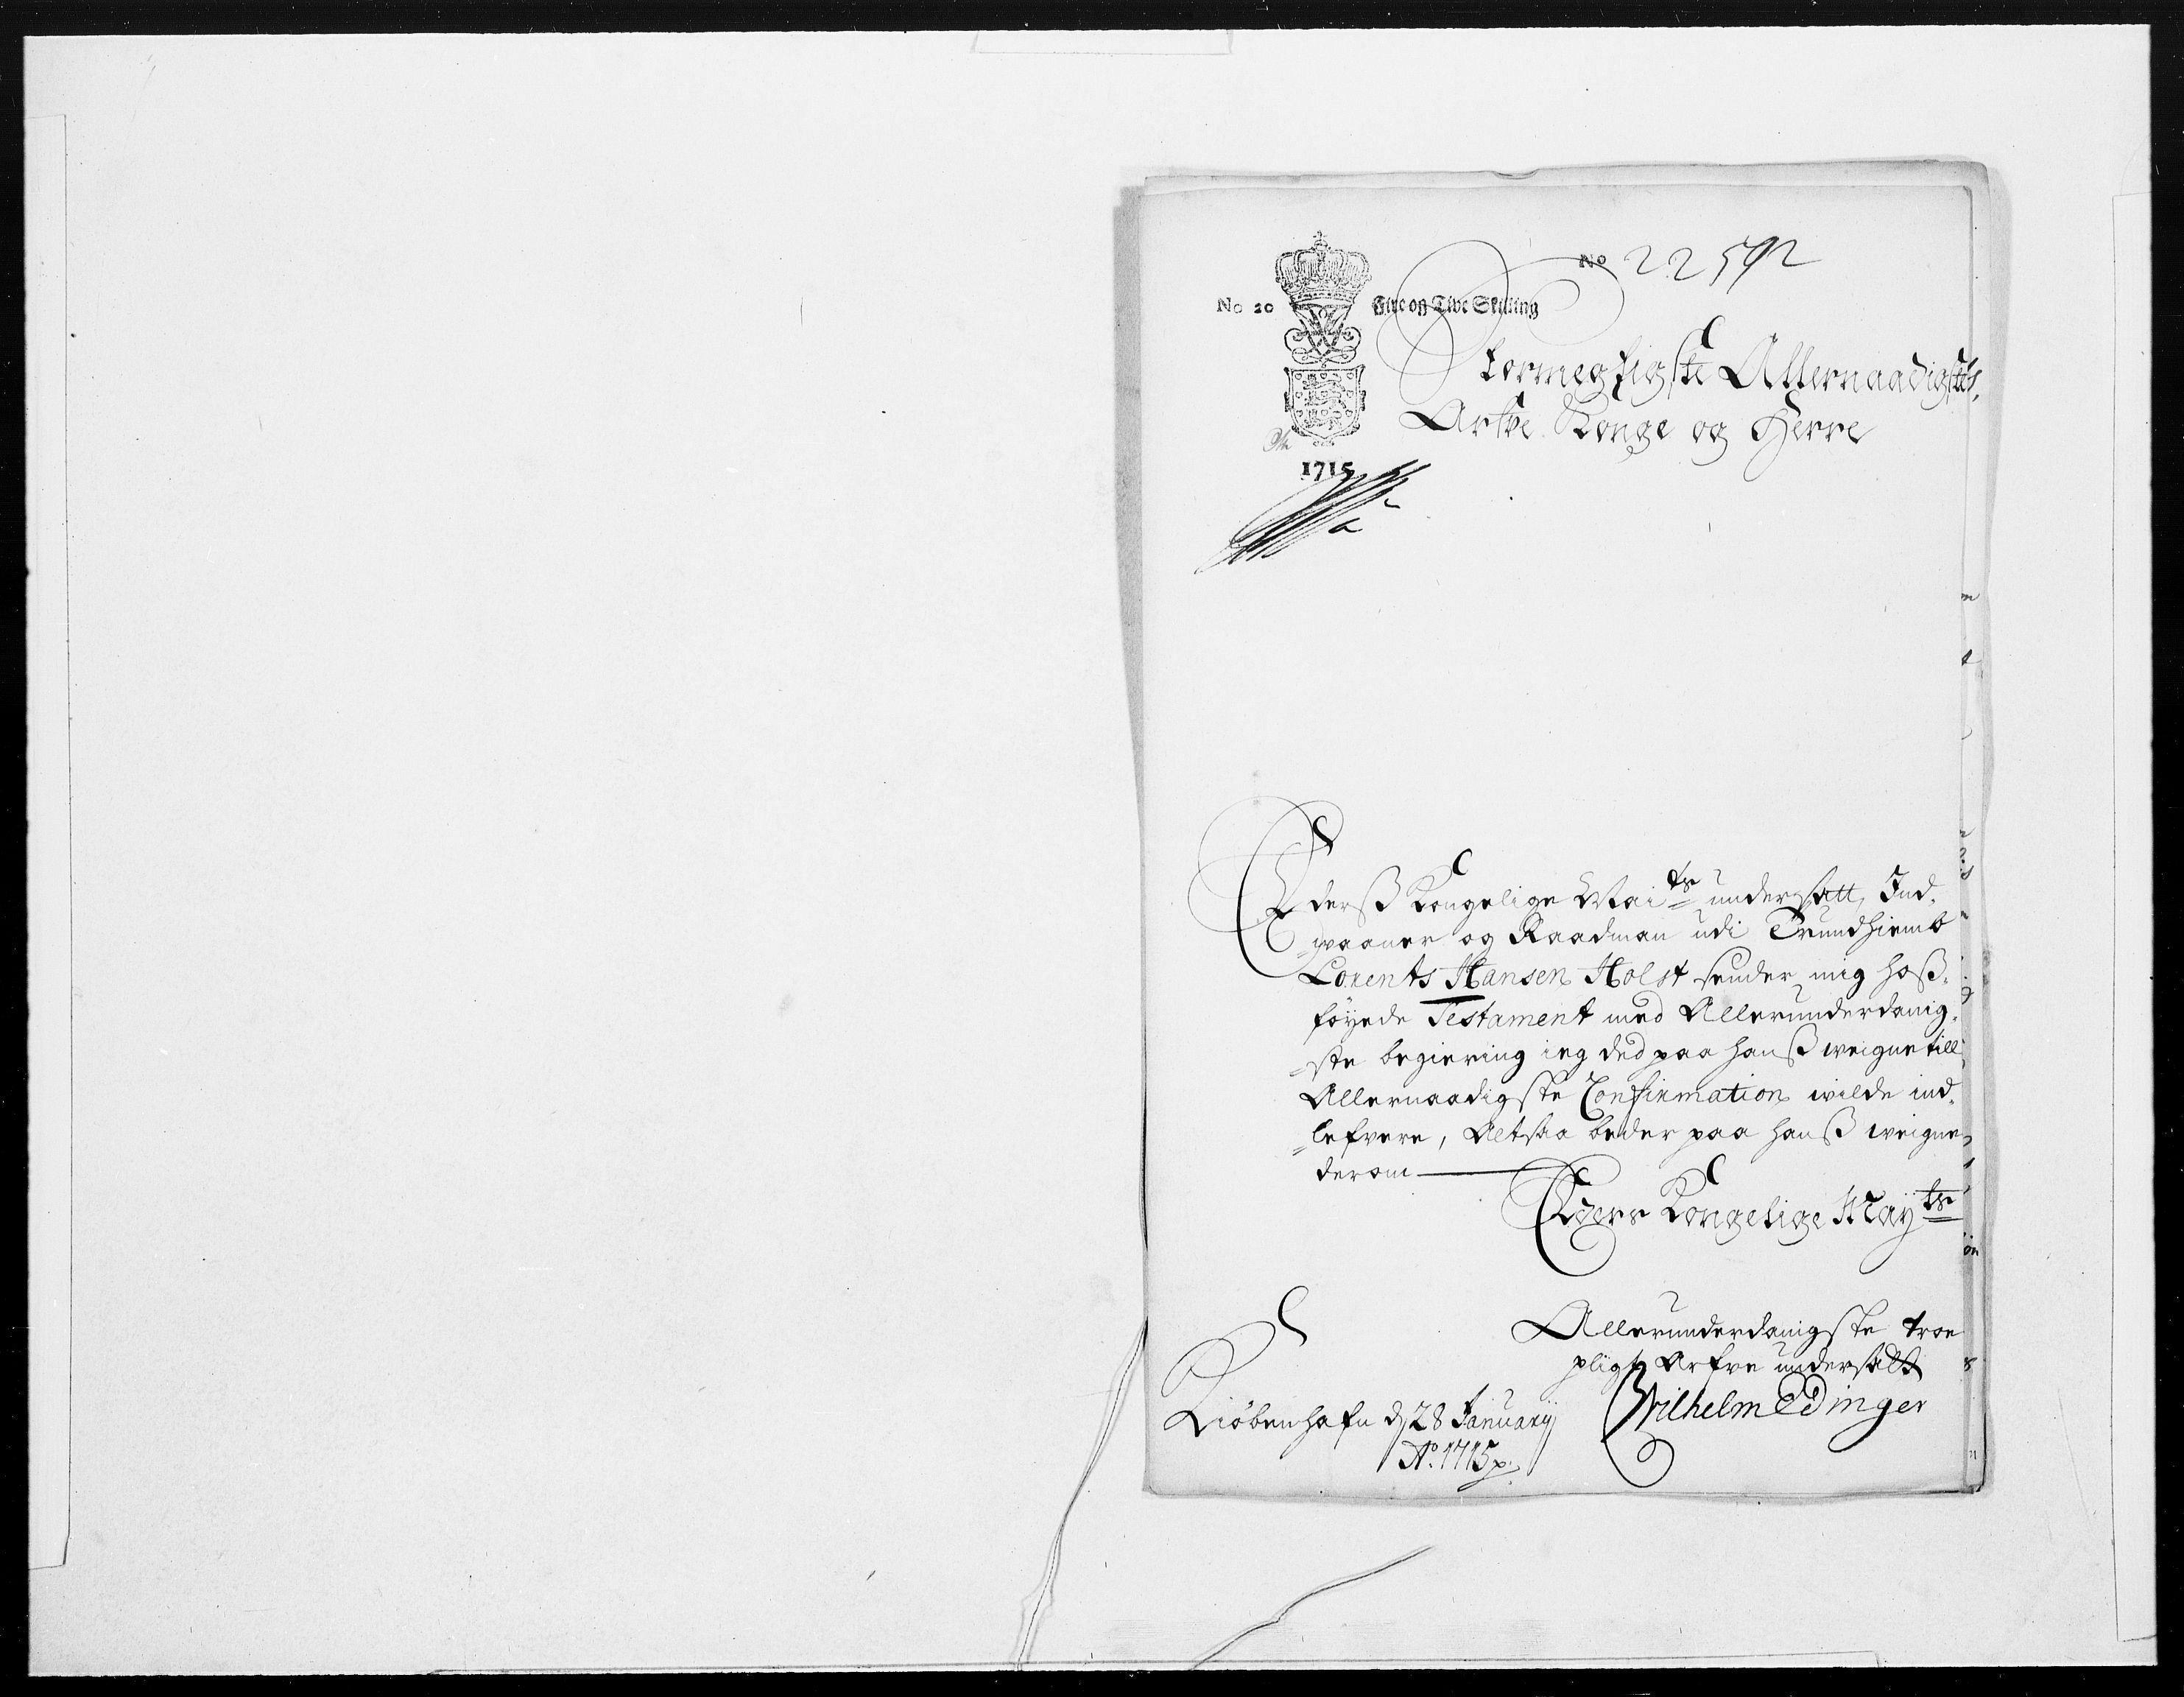 No 22592
No 20 Fire og Tive Skilling
Stormegtigste Allernaadigste
Arfve Konge og Herre
1715
Ederß Kongelige Maits undersatt, Ind-
waaner og Raadman udi Trundhiemb
Lorents Hansen Holst sender mig hoß-
føyede Testament med Allerunderdanig-
ste begiering ieg ded paa hanß weigne till
Allernaadigste Confirmation wilde ind-
lefvere, Altsaa beder paa hanß weigne
derom
Eders Kongelige Mayts
Allerunderdanigste troe
pligt Arfve undersatt
Wilhelm Edinger
Kiøbenhafn d 28 January
Ao. 1715